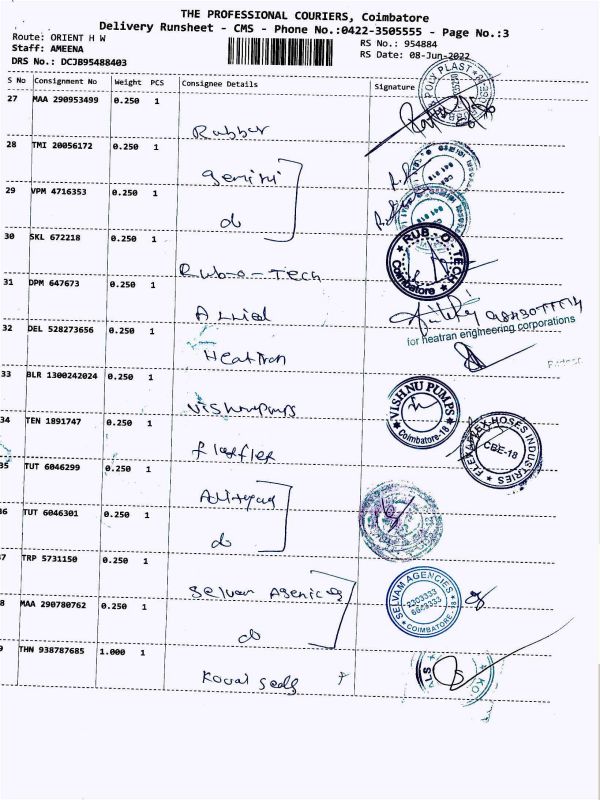 THE PROFESSIONAL COURIERS, Coimbatore
Delivery Runsheet - CMS - Phone No.:0422-3505555 - Page No.:3
Route: ORIENT H W
RS No.: 954884
Staff: AMEENA
RS Date: 08-Jun-2022
DRS No.: DCJB95488403
S No Consignment No Weight PCS Consignee Details Signature
27 MAA 290953499 0.250 1
POLY PLAST
Rubber
28 TMI 20056172 0.250 1
gemini
29 VPM 4716353 0.250 1
do
30 SKL 672218 0.250 1
RUB-O-TECH
Coimbatore
Rub-o-Tech
31 DPM 647673 0.250 1
Allied
for heatran engineering corporations
32 DEL 528273656 0.250 1
Heatran
33 BLR 1300242024 0.250 1
VISHNU PUMPS
Coimbatore-18
Vishnupumps
34 TEN 1891747 0.250 1
FLEX-HOSES INDUSTRIES
CBE-18
35 TUT 6046299 0.250 1
36 TUT 6046301 0.250 1
do
37 TRP 5731150 0.250 1
SELVAM AGENCIES
COIMBATORE-18
Selvam Agencies
8 MAA 290780762 0.250 1
do
9 THN 938787685 1.000 1
ALS
KO
Kovai Seals